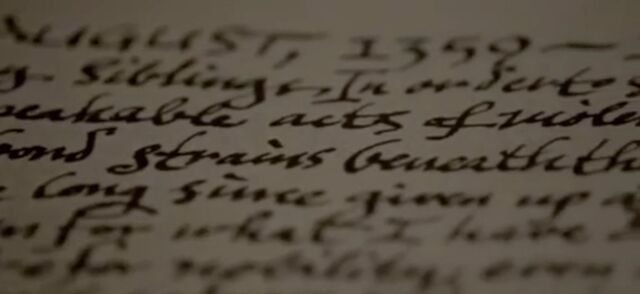 AUGUST, 1359 —
Siblings, In order to
speakable acts of viole
bond strains beneath th
long since given up a
for what I have
for nobility, even